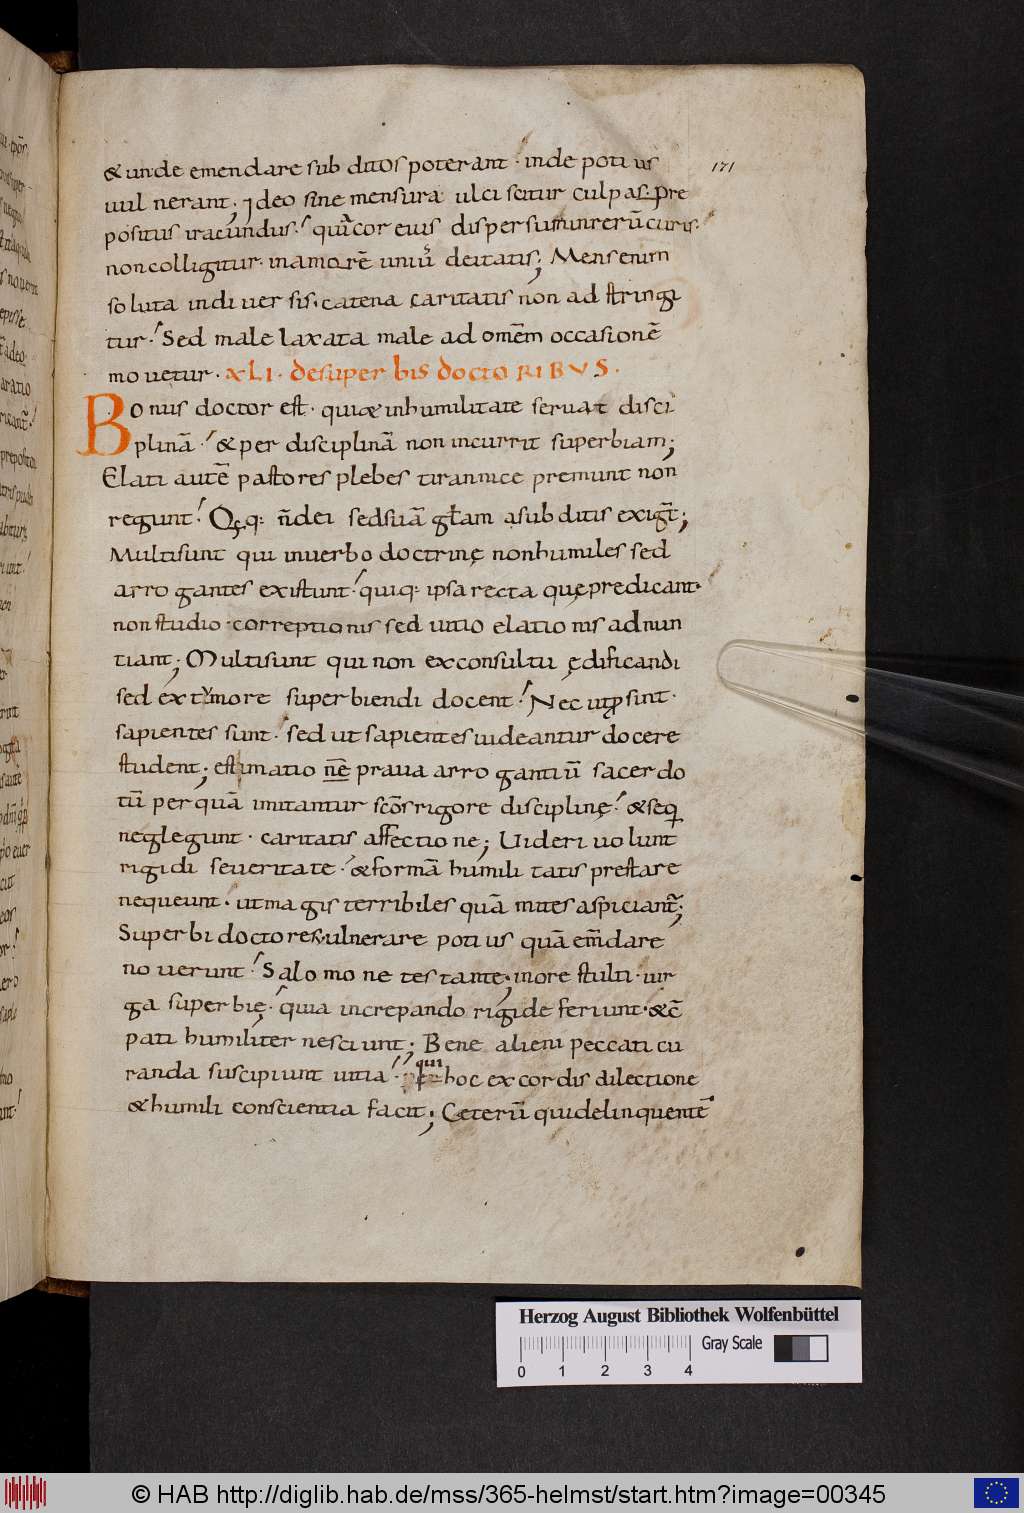 & unde emendare subditos poterant · inde potius
171
uulnerant; Ideo sine mensura ulciscitur culpas· Pre
positus iracundus· qui cor eius dispersum in rerū curis·
non colligitur· in amorē unius deitatis; Mens enim
soluta in diuersis· catena caritatis non adstringi
tur· Sed male laxata male ad omēm occasionē
mouetur · XLI · de superbis doctoRIBVS ·
Bonus doctor est · qui & in humilitate seruat disci
plinā · & per disciplinā non incurrit superbiam;
Elati autē pastores plebes tirannice premunt non
regunt·
Multi sunt qui in uerbo doctrinę non humiles sed
arrogantes existunt· quiq: ipsa recta quę predicant·
non studio · correptionis sed uitio elationis adnun
tiant; Multi sunt qui non ex consultu ędificandi
sed ex tumore superbiendi docent· Nec ut sint·
sapientes sunt · sed ut sapientes uideantur docere
student; estimatio praua arrogantiū sacerdo
tū per quā imitantur scōs rigore disciplinę· & seq
neglegunt · caritatis affectione; Uideri uolunt
rigidi seueritate · & formā humilitatis prestare
nequeunt · ut magis terribiles quā mites aspiciant;
Superbi doctores· uulnerare potius quā em̄dare
nouerunt · Salomone testante; in ore stulti · uir
ga superbię · quia increpando rigide feriunt · & cō
pati humiliter nesciunt; Bene alieni peccati cu
randa suscipiunt uitia · qui hoc ex cordis dilectione
& humili conscientia facit; Ceterū qui delinquentē
Herzog August Bibliothek Wolfenbüttel
Gray Scale
0 1 2 3 4
© HAB http://diglib.hab.de/mss/365-helmst/start.htm?image=00345